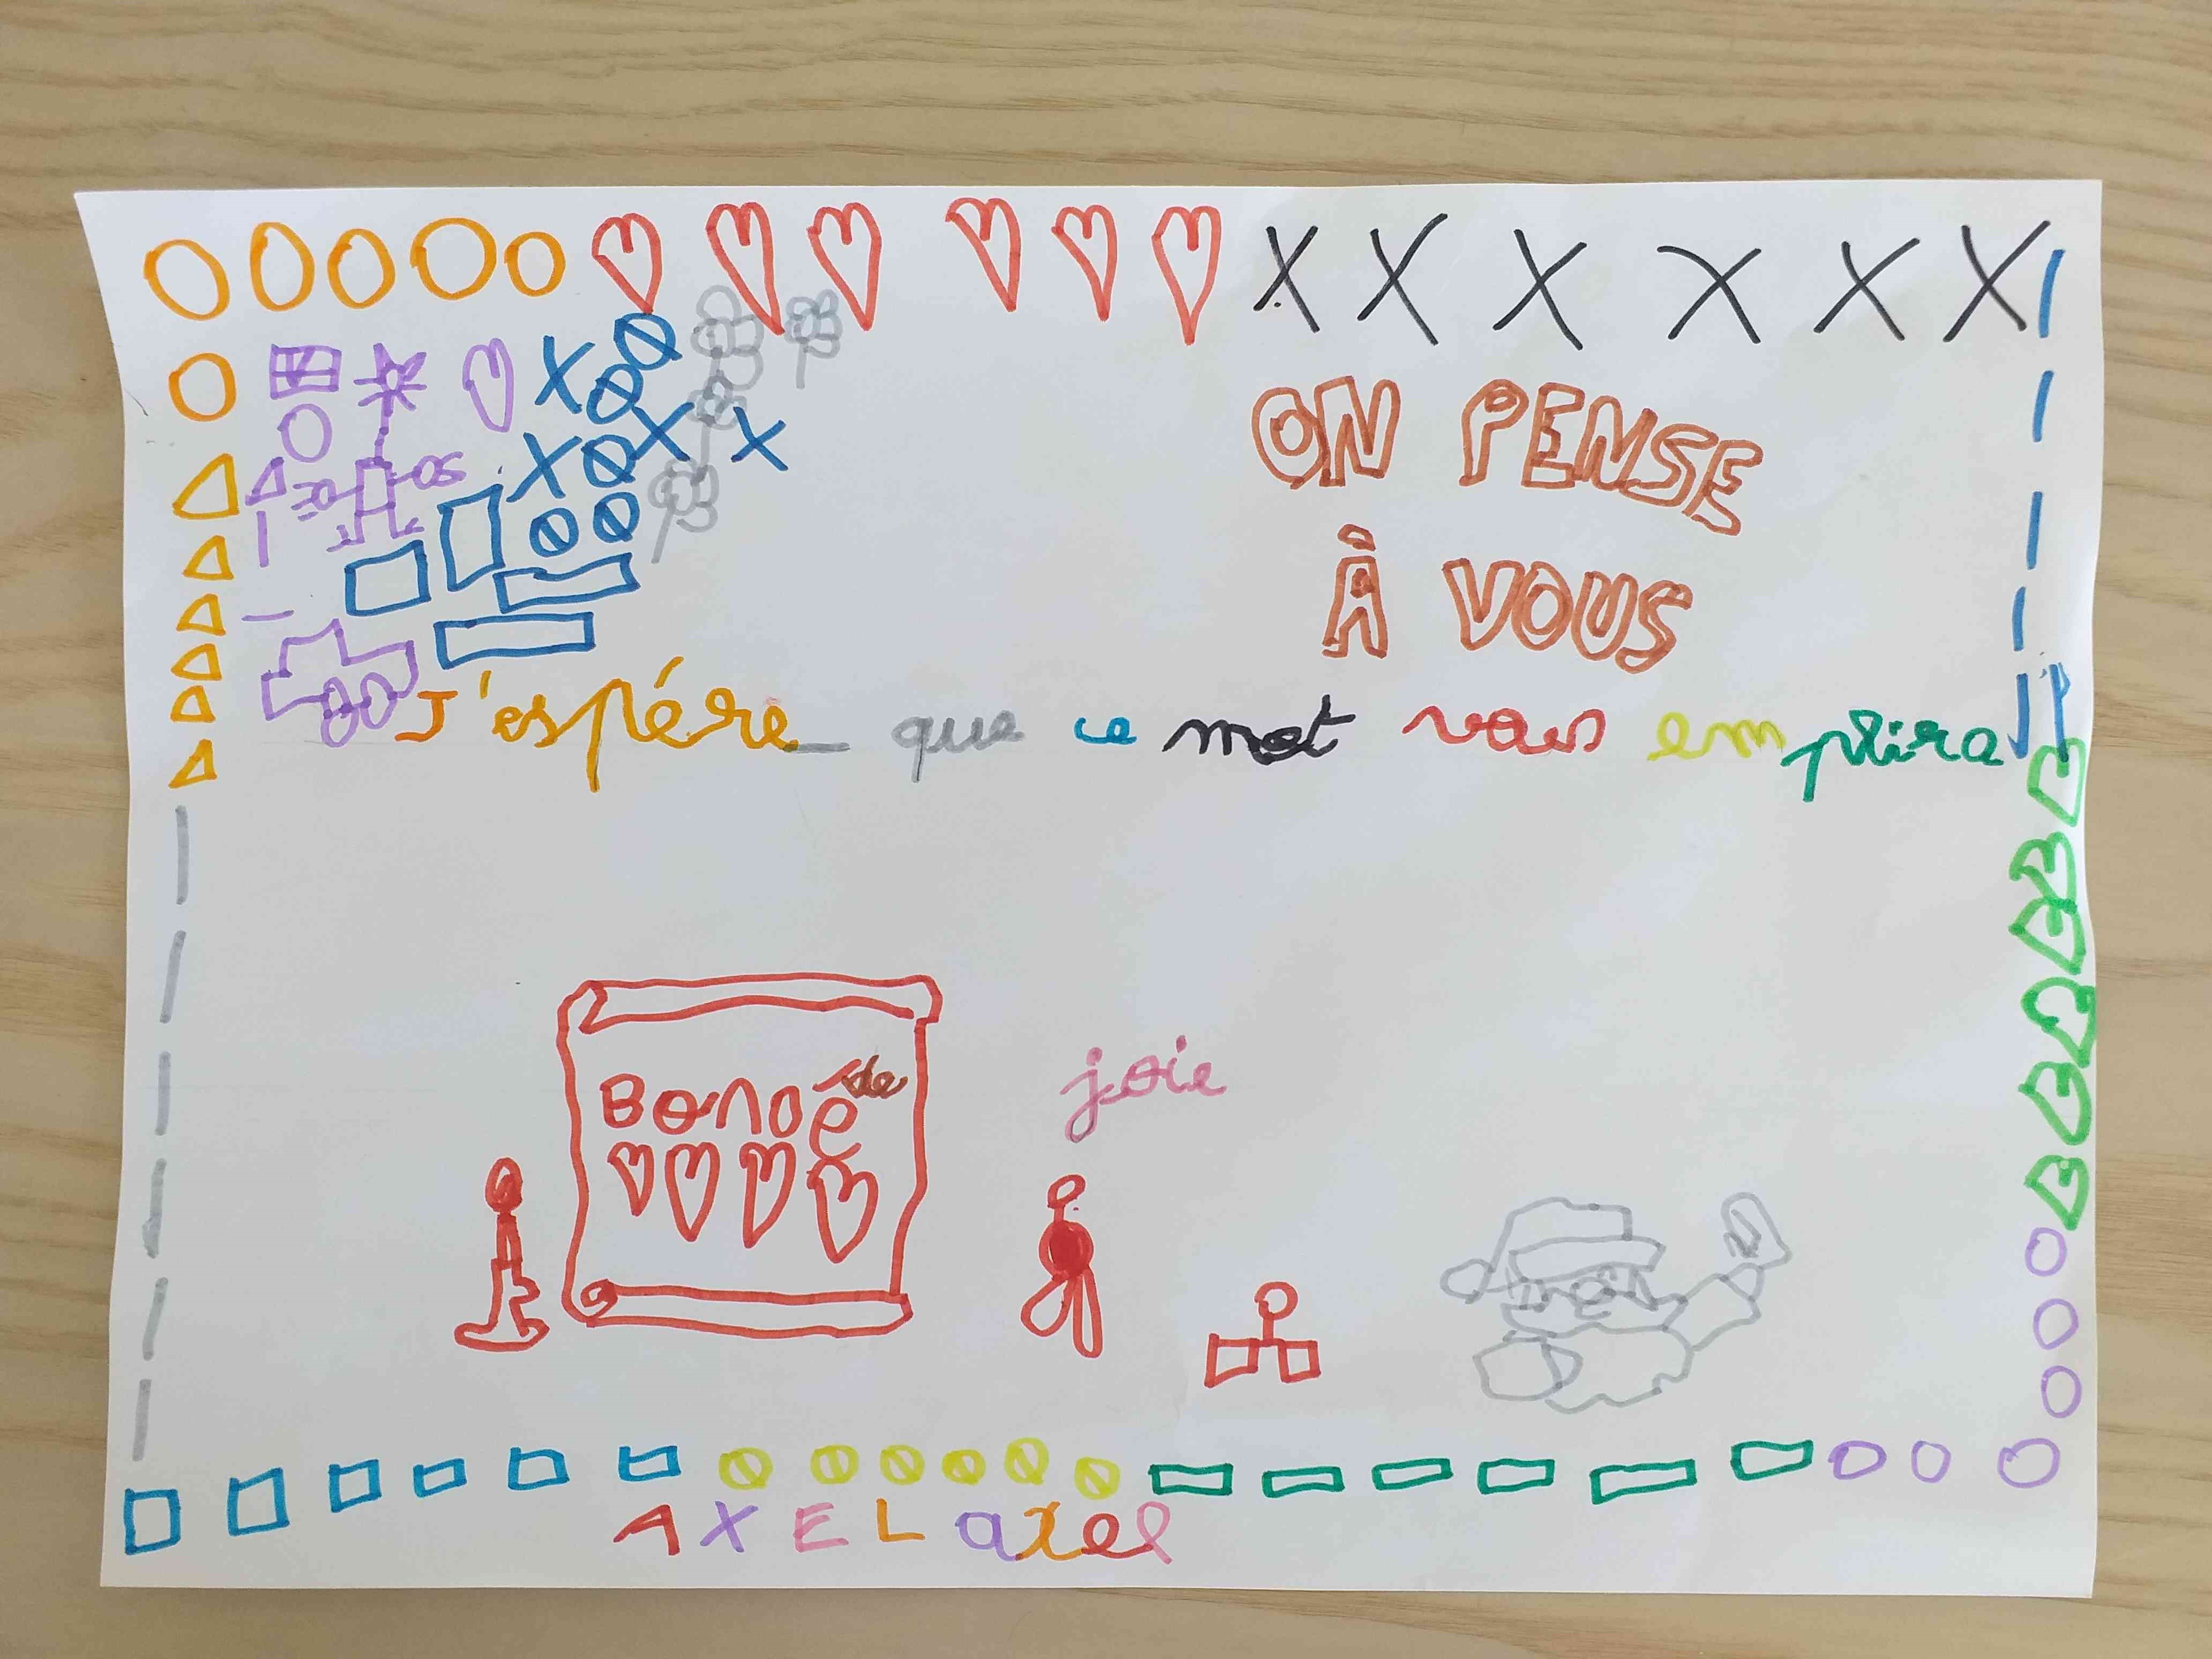 ON PENSE
À VOUS
J'espére que ce mot vous emplira
de joie
Bonoé
AXEL axel